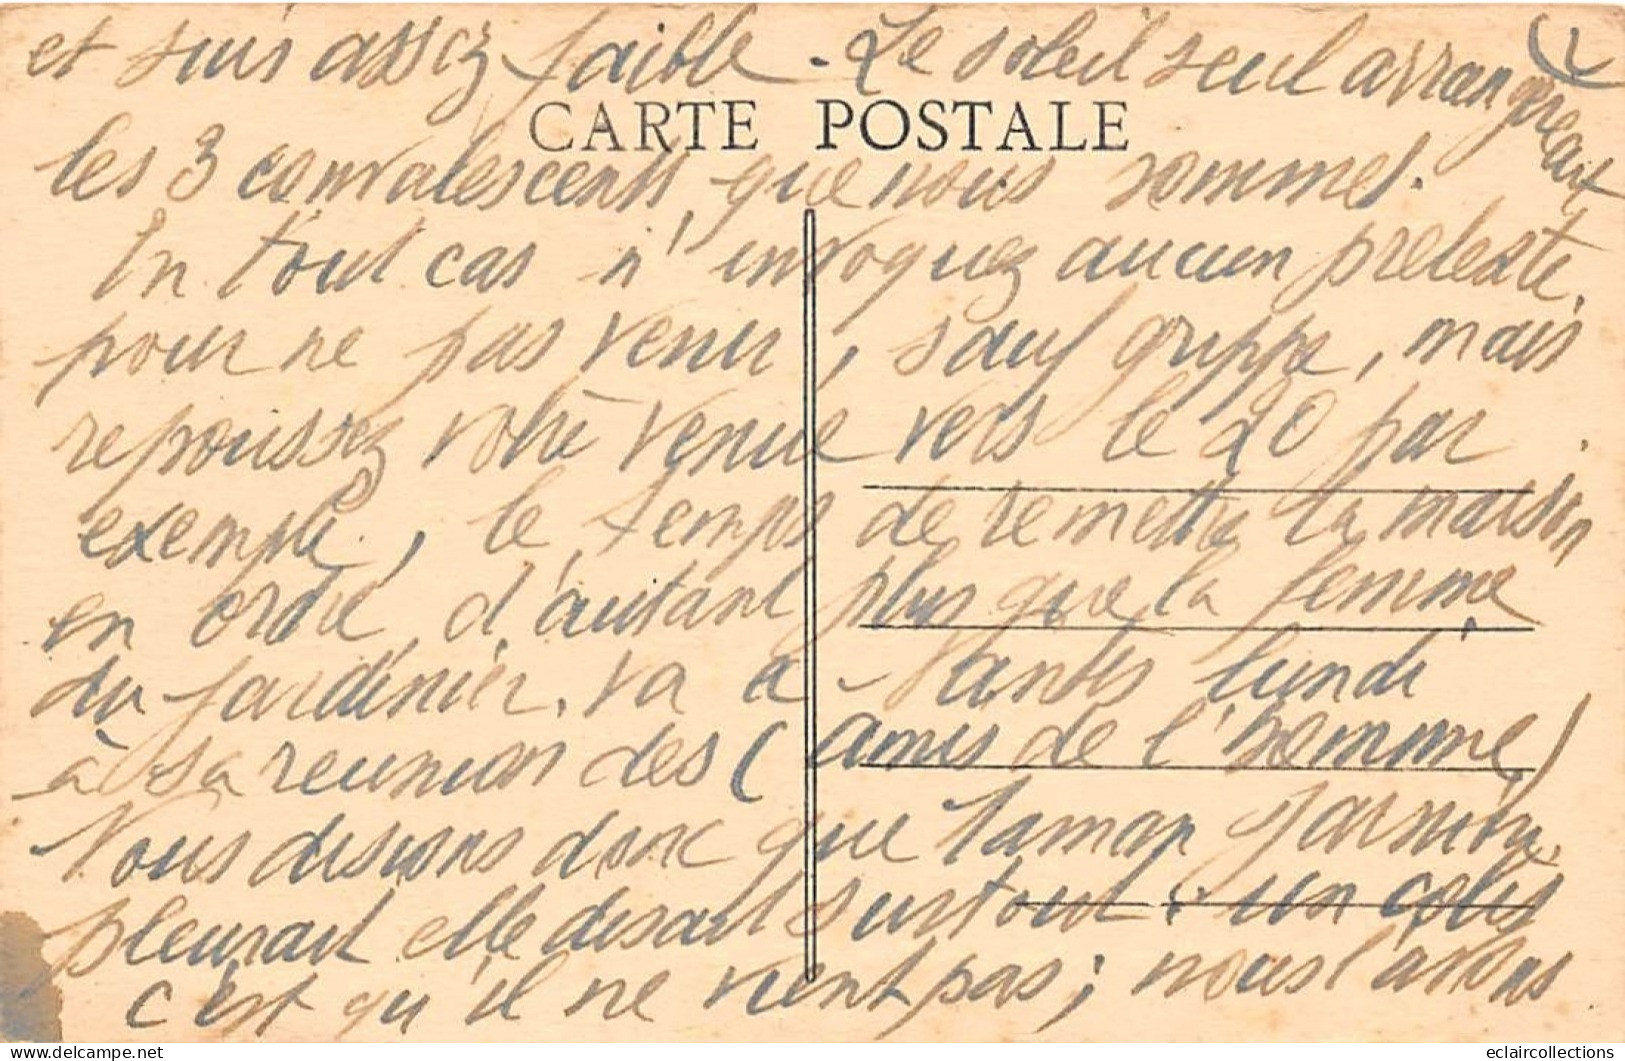 et suis assez faible. Le soleil seul arrangerait
CARTE POSTALE
les 3 convalescents, que nous sommes.
En tout cas n'invoquez aucun preteste,
pour ne pas venir, sauf grippe, mais
repoussez votre venue vers le 20 par
exemple, le temps de remettre la maison
en ordre, d'autant plus que la femme
du jardinier, va a lundi
à sa reunion des (amis de l'homme)
Nous disions donc que
pleurait elle disait surtout: un colis
c'est qu'il ne vient pas; nous l'avons
eclaircollections
https://www.delcampe.net